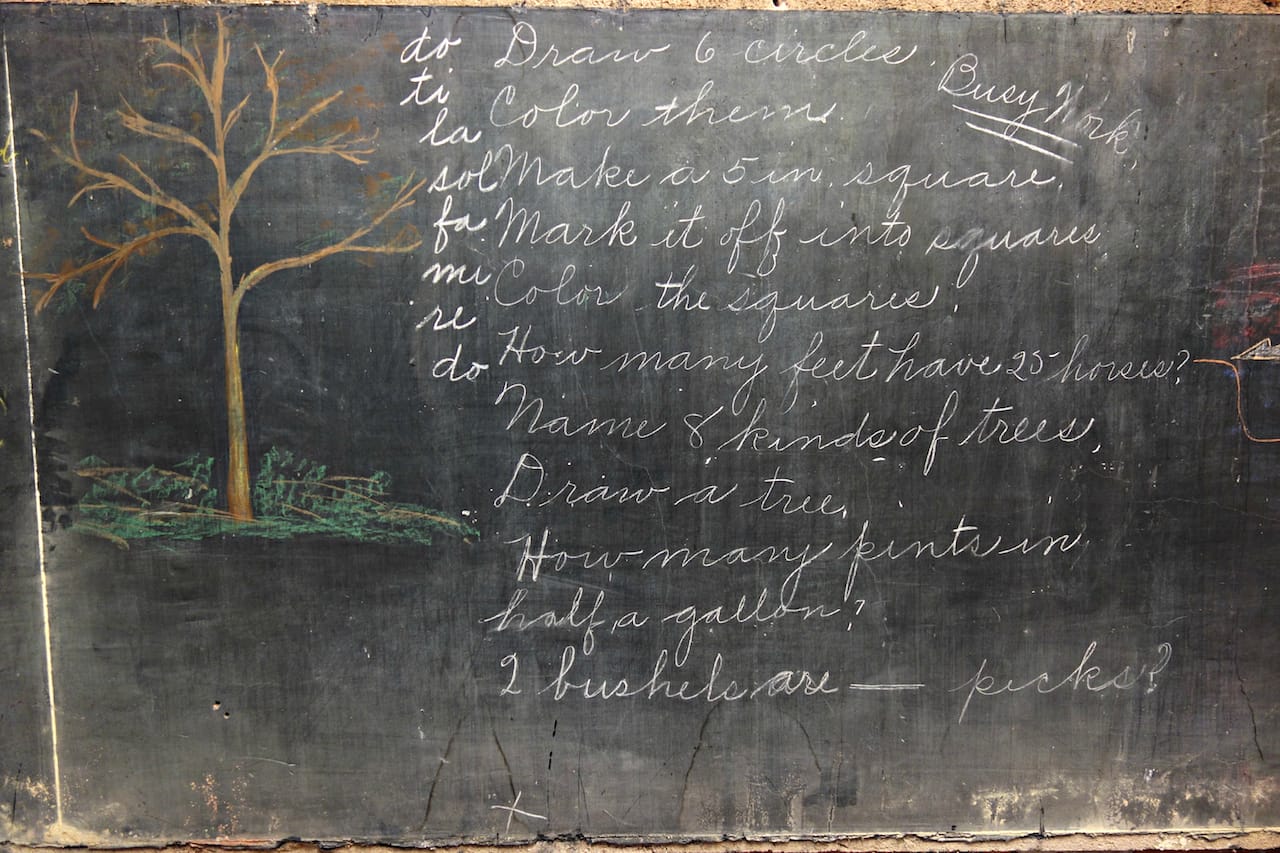 do
ti
la
sol
fa
mi
re
do
Draw 6 circles.
Color them.
Busy Work
Make a 5 in. square.
Mark it off into squares
Color the squares.
How many feet have 25 horses?
Name 8 kinds of trees.
Draw a tree.
How many pints in
half a gallon?
2 bushels are — picks?